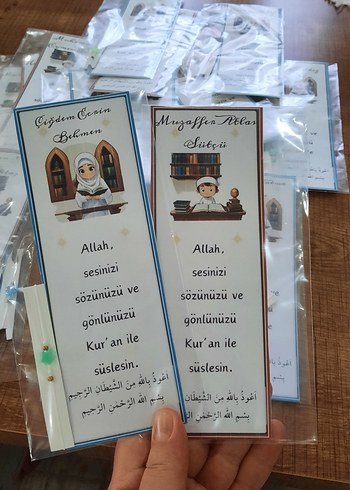 Çiğdem Ecrin
Behmen
Allah,
sesinizi
sözünüzü ve
gönlünüzü
Kur'an ile
süslesin.
اَعُوذُ بِاللهِ مِنَ الشَّيْطَانِ الرَّجِيمِ
بِسْمِ اللهِ الرَّحْمٰنِ الرَّحِيمِ
Muzaffer Atlas
Sütçü
Allah,
sesinizi
sözünüzü ve
gönlünüzü
Kur'an ile
süslesin.
اَعُوذُ بِاللهِ مِنَ الشَّيْطَانِ الرَّجِيمِ
بِسْمِ اللهِ الرَّحْمٰنِ الرَّحِيمِ